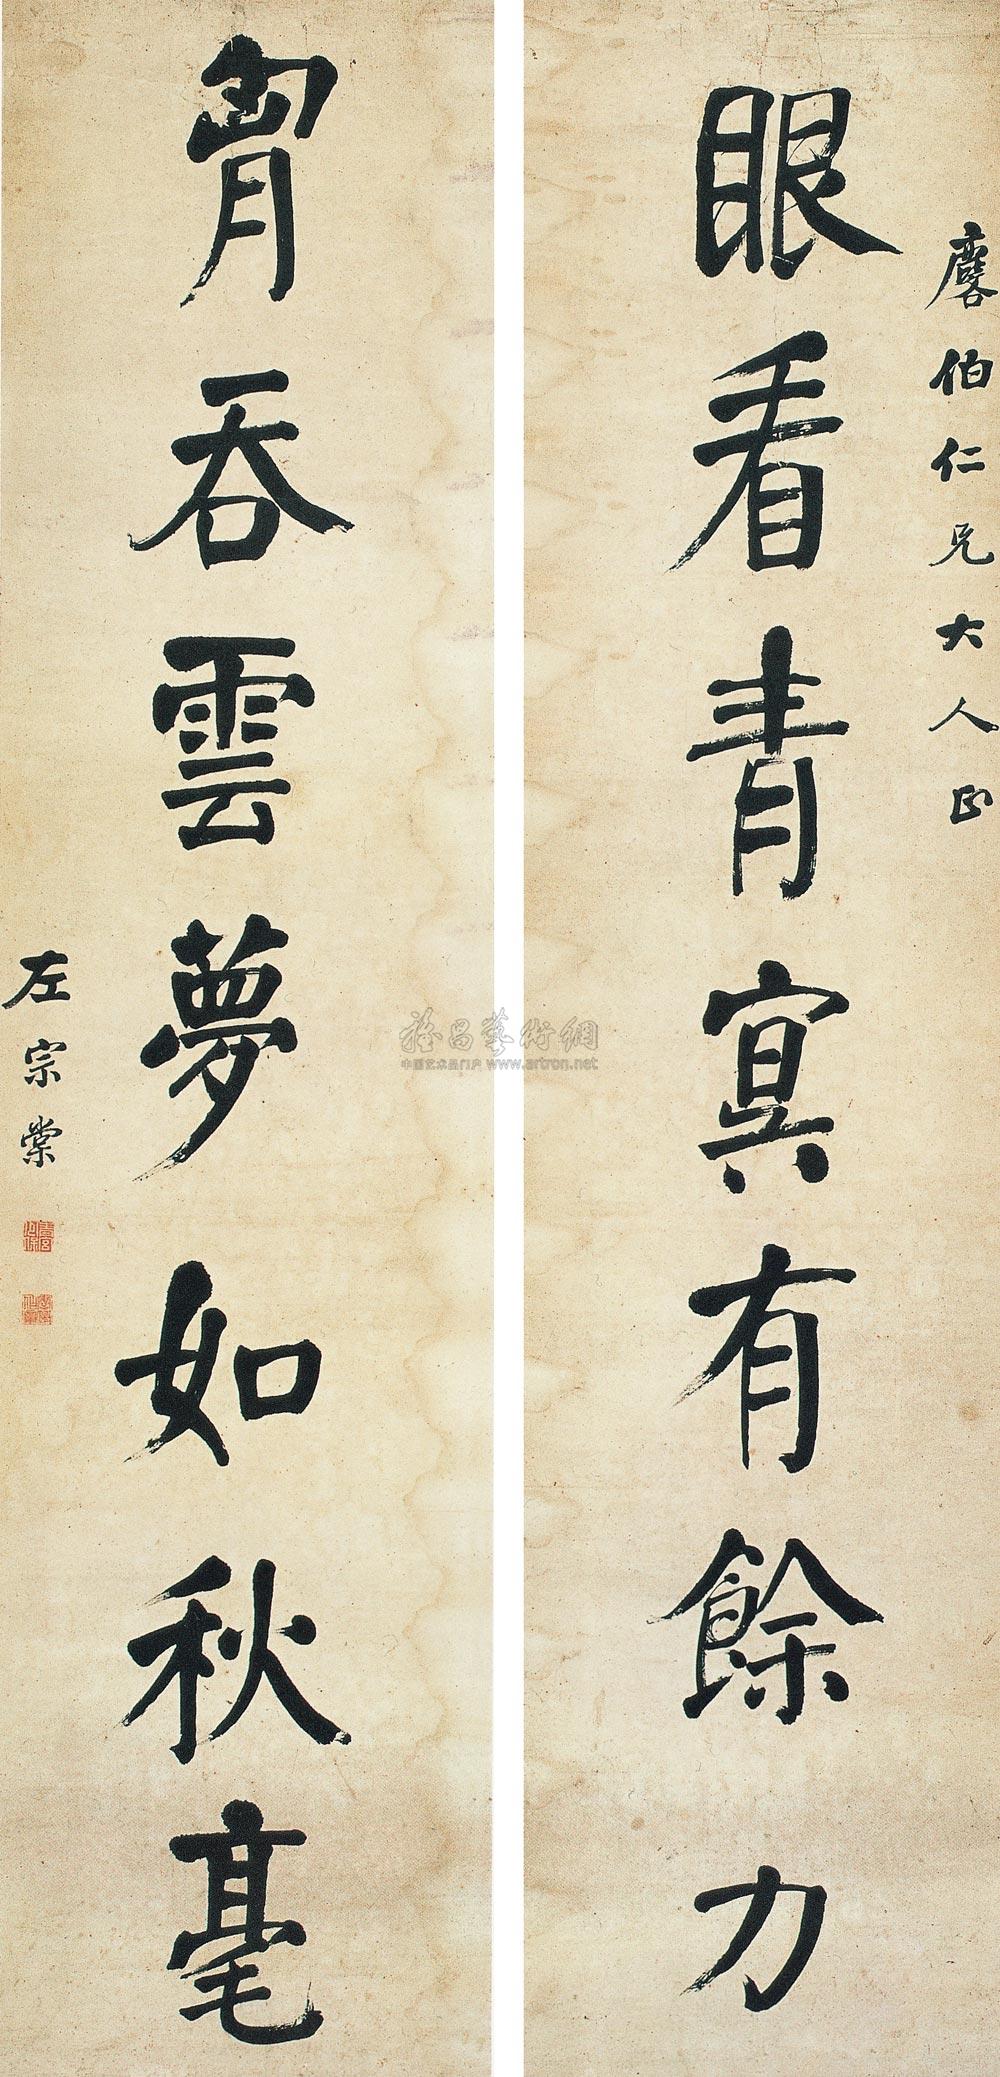 麐伯仁兄大人正
眼看青冥有餘力
胷吞雲夢如秋毫
左宗棠
雅昌藝術網
中国艺术品门户 www.artron.net